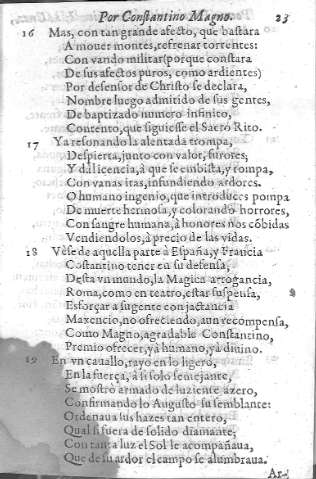 Por Constantino Magno. 23
16 Mas, con tan grande afecto, que bastara
A mouer montes, refrenar torrentes:
Con vando militar (porque constara
De sus afectos puros, como ardientes)
Por defensor de Christo se declara,
Nombre luego admitido de sus gentes,
De baptizado numero infinito,
Contento, que siguiesse el Sacro Rito.
17 Ya resonando la alentada trompa,
Despierta, junto con valor, furores,
Y dâ licencia, à que se embista, y rompa,
Con vanas iras, infundiendo ardores.
O humano ingenio, que introduces pompa
De muerte hermosa, y colorando horrores,
Con sangre humana, à honores nos cõbidas
Vendiendolos, à precio de las vidas.
18 Vèse de aquella parte à España, y Francia
Costantino tener en su defensa,
Desta vn mundo, la Magica arrogancia,
Roma, como en teatro, estar suspensa,
Esforçar a su gente con jactancia
Maxencio, no ofreciendo, aun recompensa,
Como Magno, agradable Constantino,
Premio ofrecer, yà humano, yà diuino.
19 En vn cauallo, rayo en lo ligero,
En la fuerça, à si solo semejante,
Se mostrò armado de luziente azero,
Confirmando lo Augusto su semblante:
Ordenaua sus hazes tan entero,
Qual si fuera de solido diamante;
Con tanta luz el Sol le acompañaua,
Que de su ardor el campo se alumbraua.
Ar-